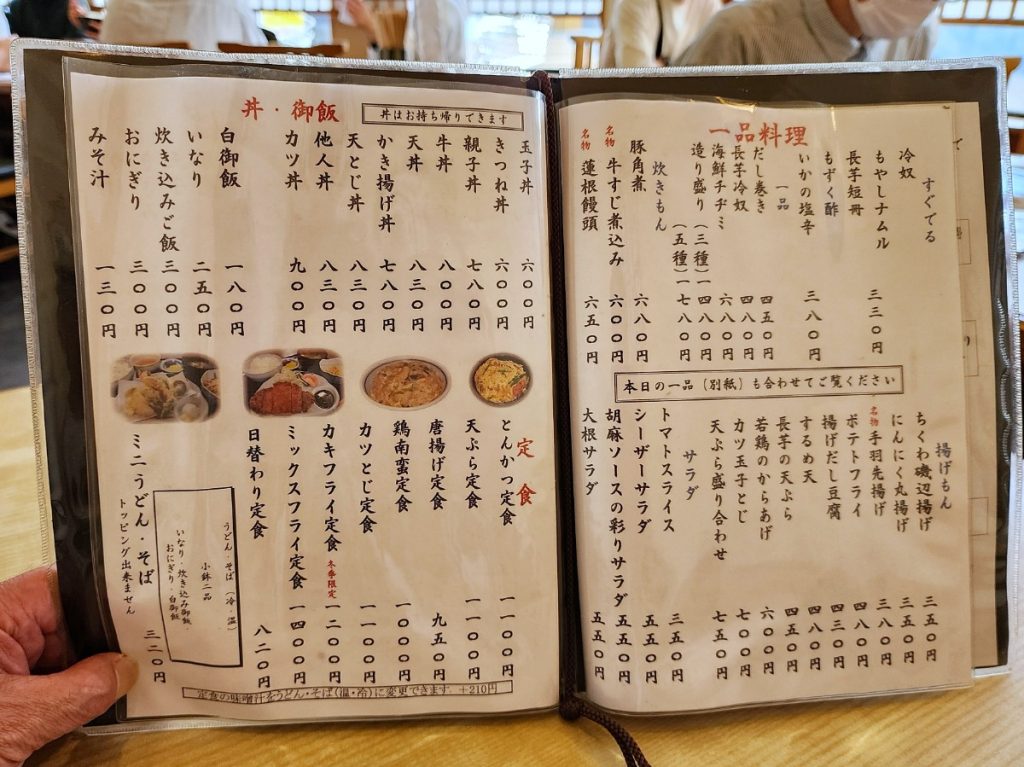 一品料理
すぐでる
冷奴
もやしナムル 三三〇円
長芋短冊
もずく酢
いかの塩辛 三八〇円
一品
だし巻き 四五〇円
長芋冷奴 四八〇円
海鮮チヂミ 六八〇円
造り盛り（三種）一四八〇円
（五種）一七八〇円
炊きもん
豚角煮 六八〇円
名物 牛すじ煮込み 六〇〇円
名物 蓮根饅頭 六五〇円
本日の一品（別紙）も合わせてご覧ください
揚げもん
ちくわ磯辺揚げ 三五〇円
にんにく丸揚げ 三五〇円
名物 手羽先揚げ 三八〇円
ポテトフライ 四八〇円
揚げだし豆腐 四三〇円
するめ天 四八〇円
長芋の天ぷら 四五〇円
若鶏のからあげ 六〇〇円
カツ玉子とじ 七〇〇円
天ぷら盛り合わせ 七五〇円
サラダ
トマトスライス 三五〇円
シーザーサラダ 五五〇円
胡麻ソースの彩りサラダ 五五〇円
大根サラダ 五五〇円
丼・御飯
丼はお持ち帰りできます
玉子丼 六〇〇円
きつね丼 六〇〇円
親子丼 七八〇円
牛丼 八〇〇円
天丼 八三〇円
かき揚げ丼 七八〇円
天とじ丼 八三〇円
他人丼 八三〇円
カツ丼 九〇〇円
白御飯 一八〇円
いなり 二五〇円
炊き込みご飯 三〇〇円
おにぎり 三〇〇円
みそ汁 一三〇円
定食
とんかつ定食 一一〇〇円
天ぷら定食 一一〇〇円
唐揚げ定食 九五〇円
鶏南蛮定食 一〇〇〇円
カツとじ定食 一一〇〇円
カキフライ定食 冬季限定 一二〇〇円
ミックスフライ定食 一四〇〇円
日替わり定食 八二〇円
うどん・そば（冷・温）
小鉢二品
いなり・炊き込み御飯・
おにぎり・白御飯
ミニうどん・そば 三二〇円
トッピング出来ません
定食の味噌汁をうどん・そば（温・冷）に変更できます。＋210円